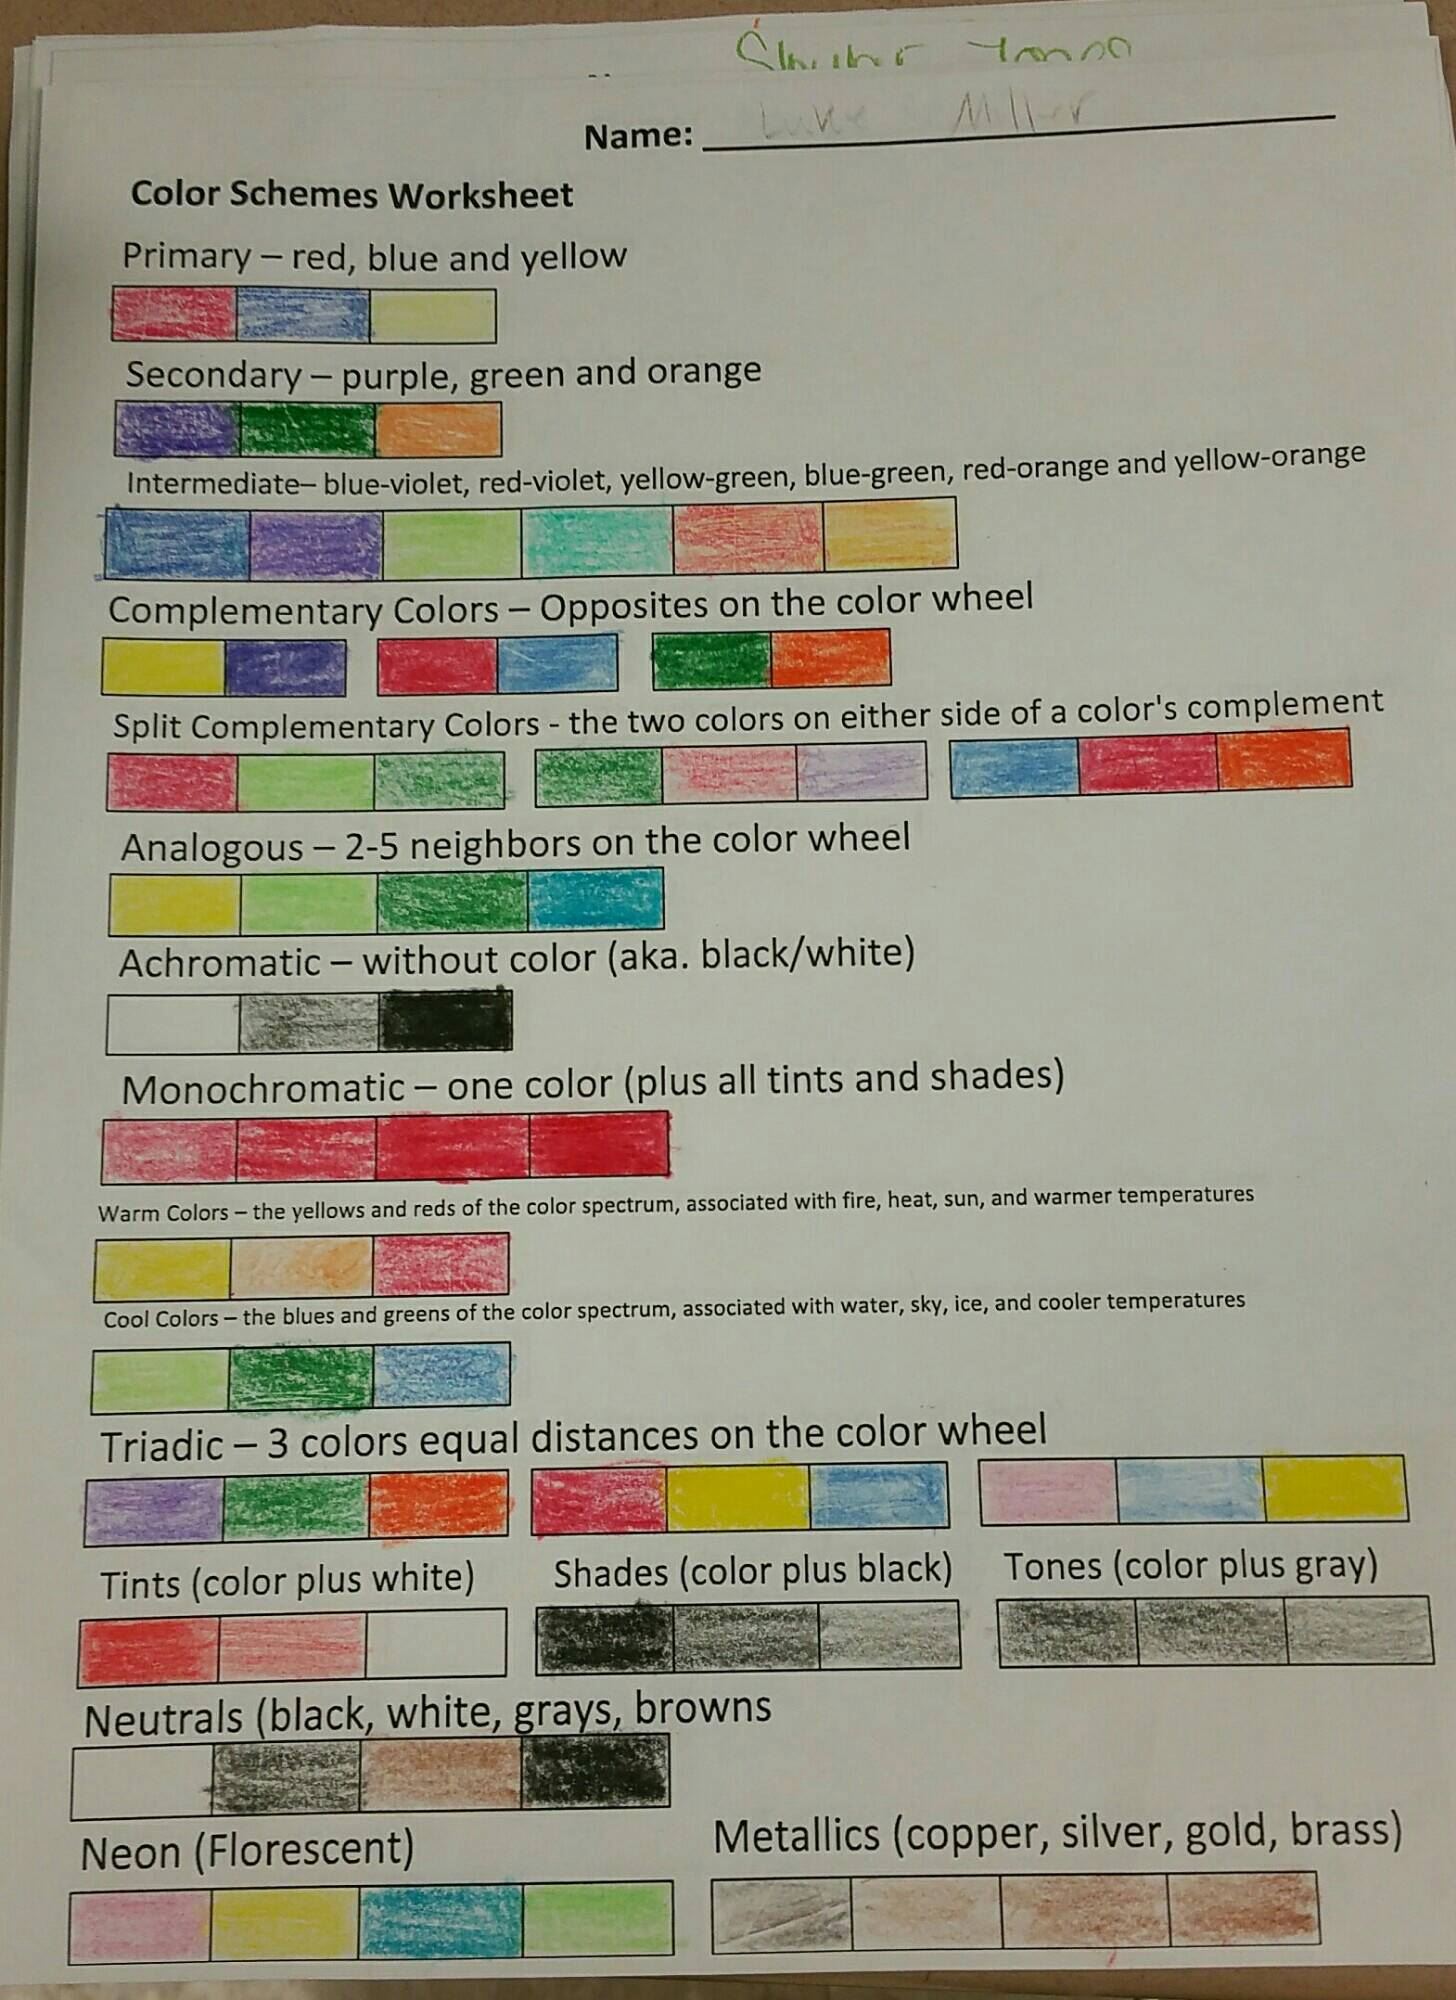 Name: Luke Miller
Color Schemes Worksheet
Primary – red, blue and yellow
Secondary – purple, green and orange
Intermediate– blue-violet, red-violet, yellow-green, blue-green, red-orange and yellow-orange
Complementary Colors – Opposites on the color wheel
Split Complementary Colors - the two colors on either side of a color's complement
Analogous – 2-5 neighbors on the color wheel
Achromatic – without color (aka. black/white)
Monochromatic – one color (plus all tints and shades)
Warm Colors – the yellows and reds of the color spectrum, associated with fire, heat, sun, and warmer temperatures
Cool Colors – the blues and greens of the color spectrum, associated with water, sky, ice, and cooler temperatures
Triadic – 3 colors equal distances on the color wheel
Tints (color plus white) Shades (color plus black) Tones (color plus gray)
Neutrals (black, white, grays, browns
Neon (Florescent) Metallics (copper, silver, gold, brass)